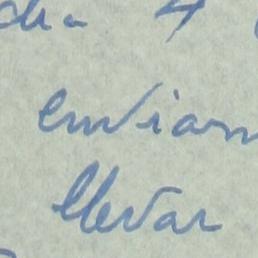 4
enviam
llevar